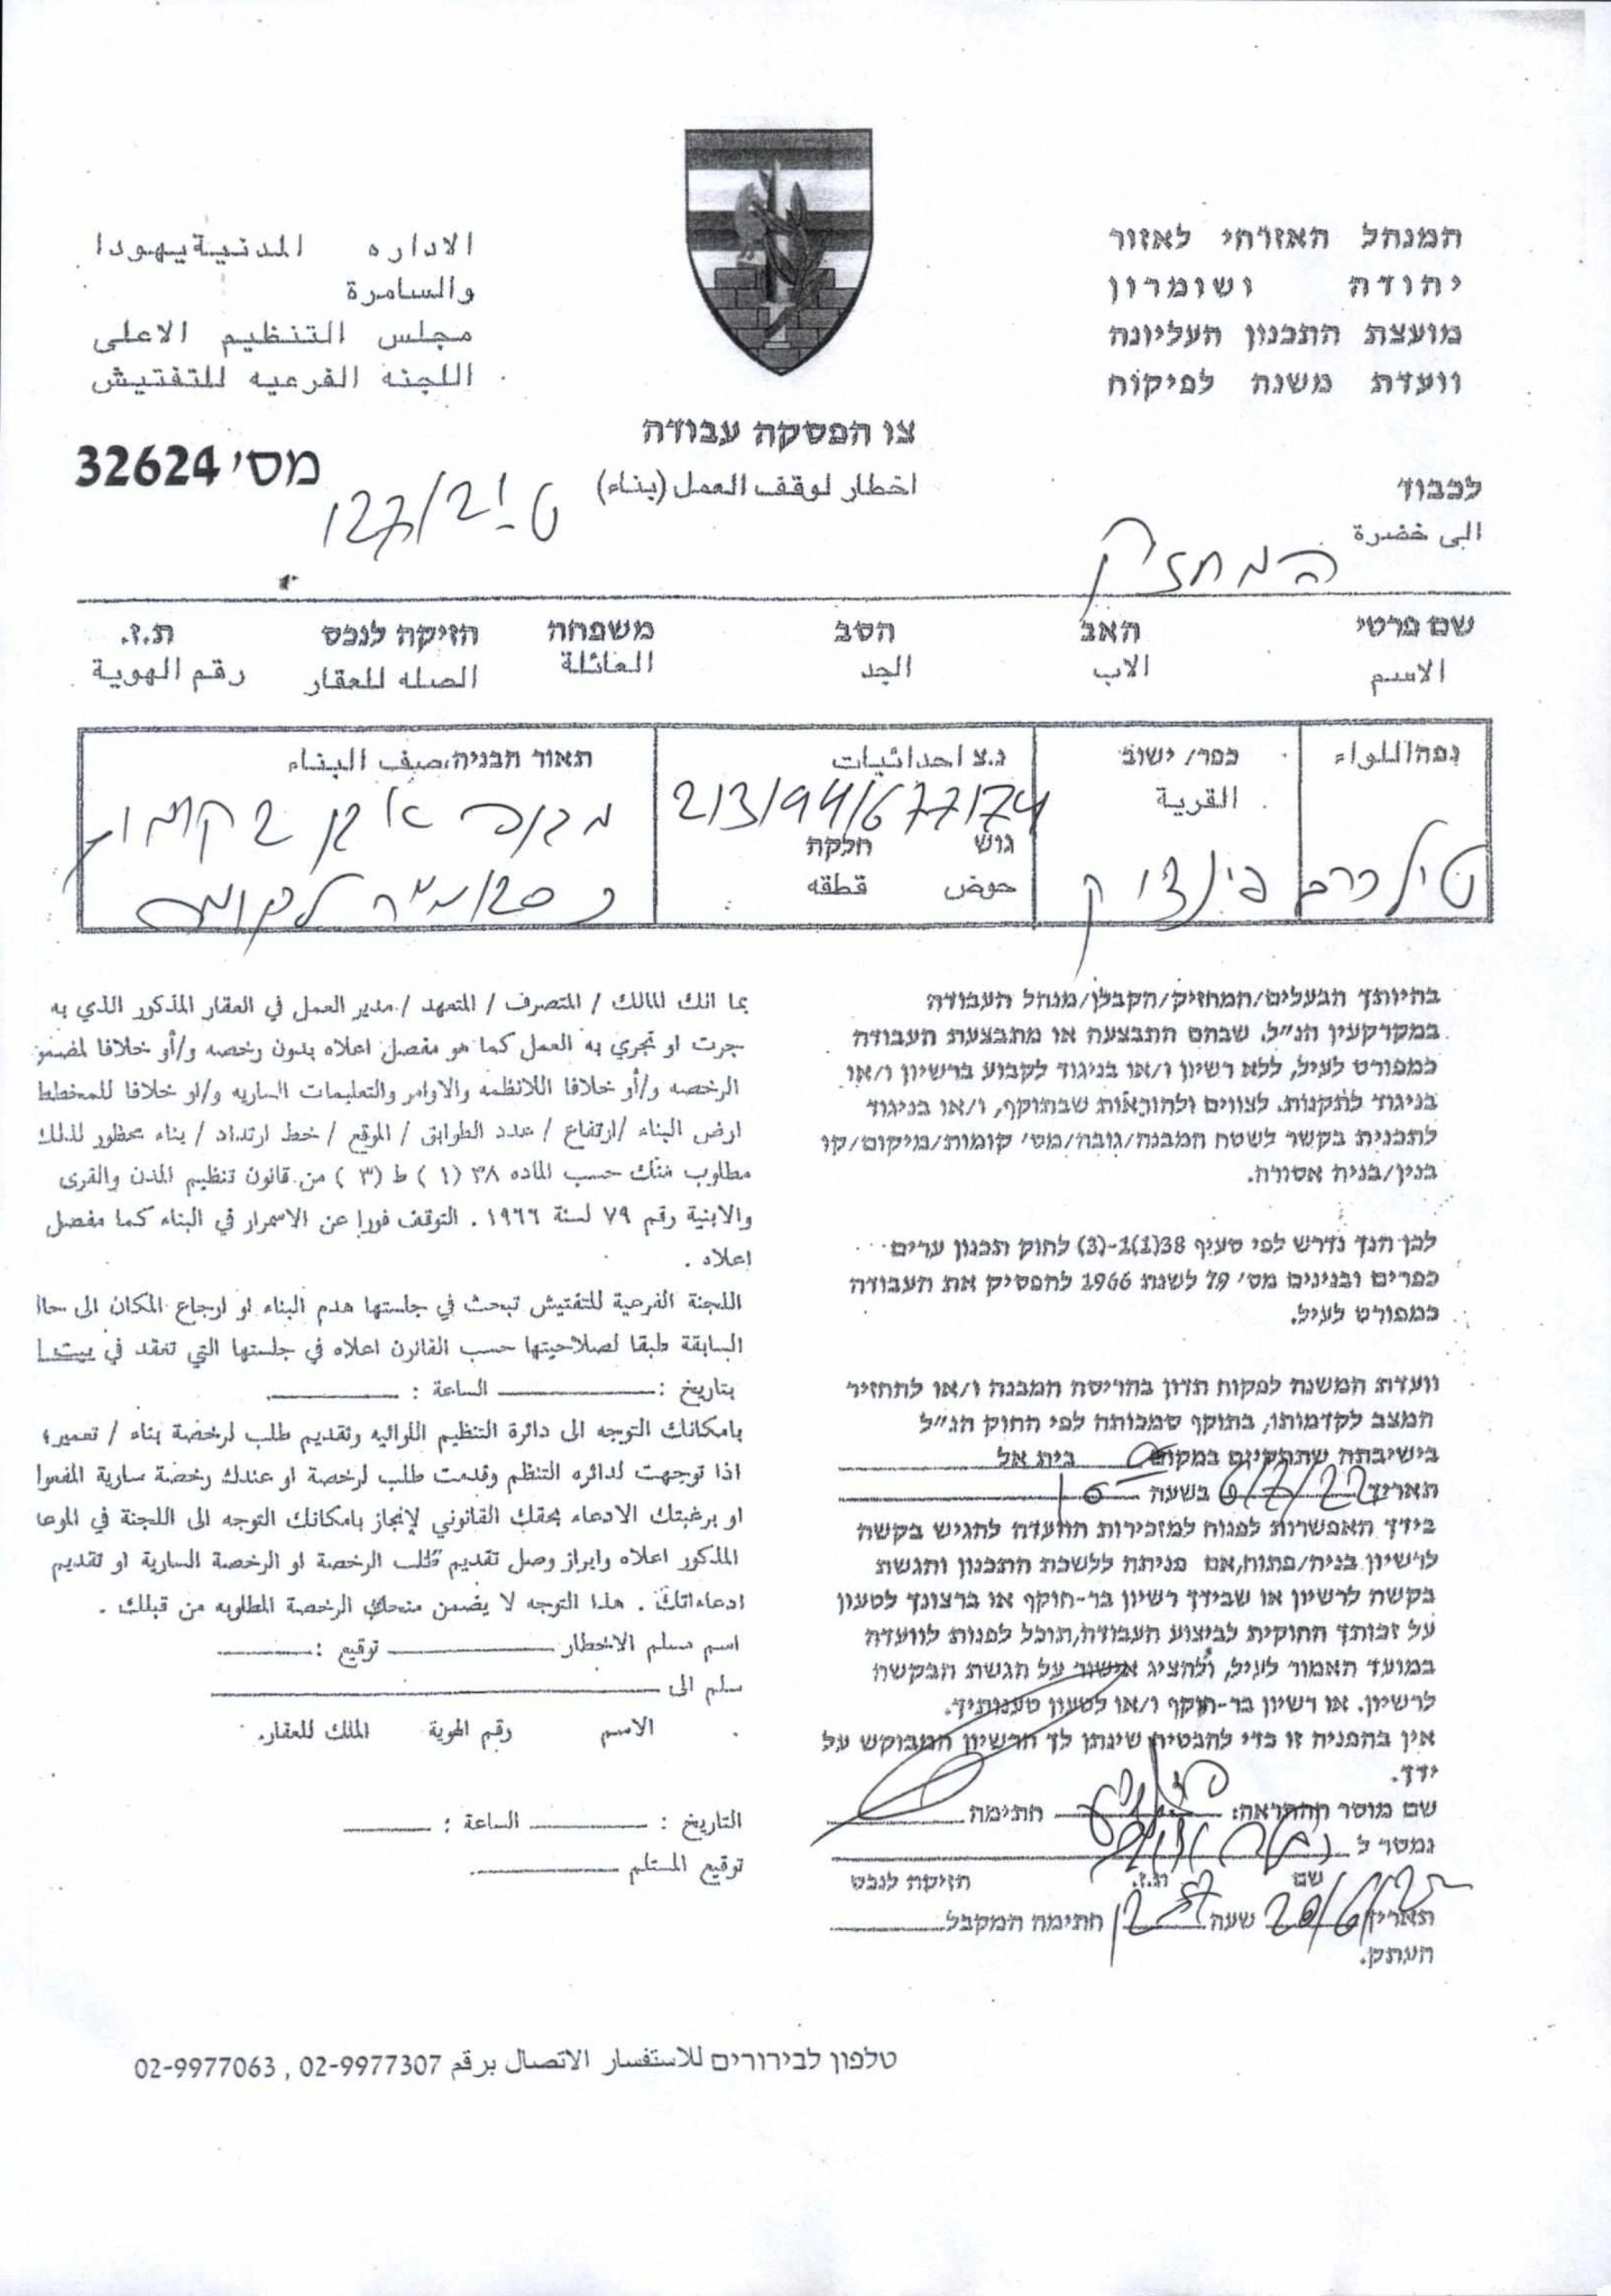 המנהל האזרחי לאזור
יהודה ושומרון
מועצת התכנון העליונה
וועדת משנה לפיקוח
الاداره المدنية يهودا
والسامرة
مجلس التنظيم الاعلى
اللجنه الفرعيه للتفتيش
צו הפסקה עבודה
اخطار لوقف العمل (بناء)
מס' 32624
ט 127/21
לכבוד
الى خضرة
המחזיק
שם פרטי האב הסב משפחה הזיקה לנכס ת.ז.
الاسم الاب الجد العائلة الصله للعقار رقم الهوية
נפה اللواء
טול כרם
כפר/ ישוב
القرية
פונדוק
נ.צ احداثيات
213194/677174
גוש חלקה
حوض قطقه
תאור הבניה، صيف البناء
מבנה אבן בקומו
לקומה
בהיותך הבעלים/המחזיק/הקבלן/מנהל העבודה
במקרקעין הנ"ל, שבהם התבצעה או מתבצעת העבודה
כמפורט לעיל, ללא רשיון ו/או בניגוד לקבוע ברשיון ו/או
בניגוד לתקנות, לצווים ולהוראות שבתוקף, ו/או בניגוד
לתכנית בקשר לשטח המבנה/גובה/מס' קומות/מיקום/קו
בנין/בניה אסורה.
לכן הנך נדרש לפי סעיף 38(1)1-(3) לחוק תכנון ערים
כפרים ובנינים מס' 79 לשנת 1966 להפסיק את העבודה
כמפורט לעיל.
וועדת המשנה לפקוח תדון בהריסה המבנה ו/או לתחזיר
המצב לקדמותו, בתוקף סמכותה לפי החוק הנ"ל
בישיבתה שתתקיים במקום בית אל
תאריך 6/7/22 בשעה 10
בידך האפשרות לפנות למזכירות הוועדה להגיש בקשה
לרשיון בניה/פתוח,אם פניתה ללשכת התכנון והגשת
בקשה לרשיון או שבידך רשיון בר-תוקף או ברצונך לטעון
על זכותך החוקית לביצוע העבודה,תוכל לפנות לוועדה
במועד האמור לעיל, ולהציג אישור על הגשת הבקשה
לרשיון, או רשיון בר-תוקף ו/או לטעון טענותיך.
אין בהפניה זו כדי להבטיח שינתן לך הרשיון המבוקש על
ידך.
שם מוסר ההתראה: חתימה
נמסר ל
שם ת.ז. הזיקה לנכס
תאריך 20/6/22 שעה 12 חתימה המקבל
העתק.
بما انك المالك / المتصرف / المتعهد / مدير العمل في العقار المذكور الذي به
جرت او تجري به العمل كما هو مفصل اعلاه بدون رخصه و/أو خلافا لمضمو
الرخصه و/أو خلافا اللانظمه والاوامر والتعليمات الساريه و/او خلافا للمخطط
ارض البناء /ارتفاع / عدد الطوابق / الموقع / خط ارتداد / بناء محظور لذلك
مطلوب منك حسب الماده ٣٨ (١) ط (٣) من قانون تنظيم المدن والقرى
والابنية رقم ٧٩ لسنة ١٩٦٦ . التوقف فورا عن الاسمرار في البناء كما مفصل
اعلاه .
اللجنة الفرعية للتفتيش تبحث في جلستها هدم البناء او ارجاع المكان الى حاا
السابقة طبقا لصلاحيتها حسب القانون اعلاه في جلستها التي تنعقد في بيت ا
بتاريخ : الساعة :
بامكانك التوجه الى دائرة التنظيم اللوائيه وتقديم طلب لرخصة بناء / تعمير؛
اذا توجهت لدائره التنظم وقدمت طلب لرخصة او عندك رخصة سارية المفعوا
او برغبتك الادعاء بحقك القانوني لإنجاز بامكانك التوجه الى اللجنة في الموعا
المذكور اعلاه وابراز وصل تقديم طلب الرخصة او الرخصة السارية او تقديم
ادعاءاتك . هذا التوجه لا يضمن منحك الرخصة المطلوبه من قبلك .
اسم مسلم الاخطار توقيع :
سلم الى
الاسم رقم الهوية الملك للعقار.
التاريخ : الساعة :
توقيع المستلم
טלפון לבירורים للاستفسار الاتصال برقم 02-9977307 , 02-9977063